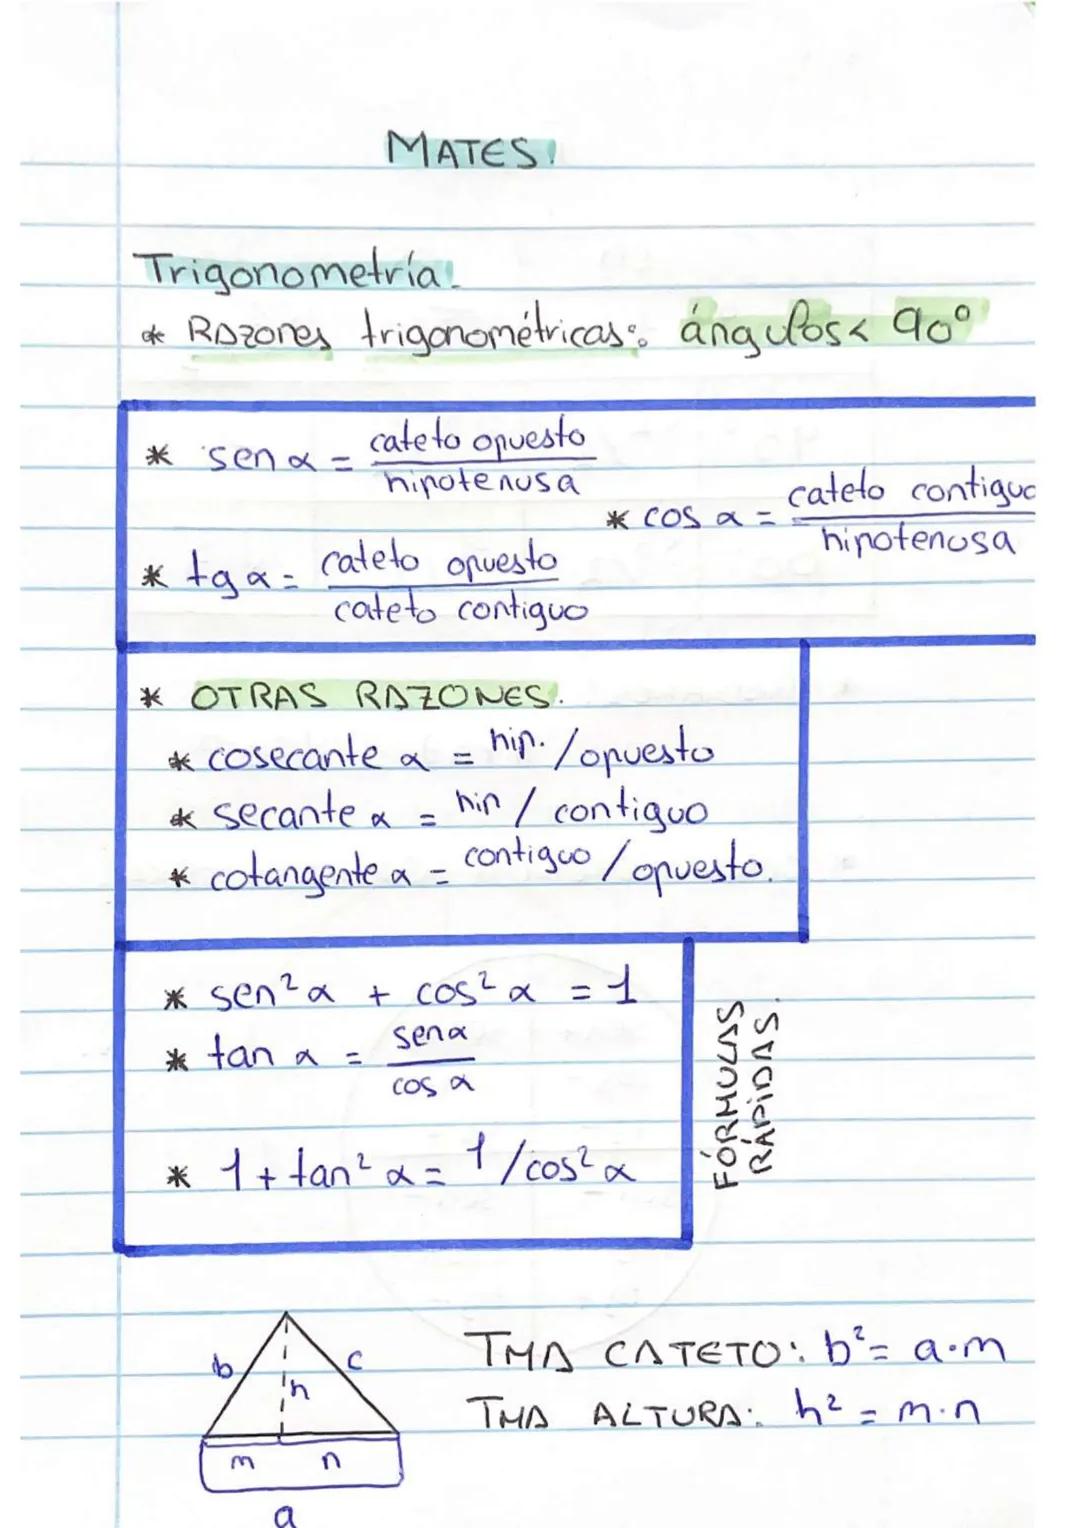 MATES.
Trigonometría.
* Razones trigonométricas: ángulos < 90º
* sen α = cateto opuesto / hipotenusa
* cos α = cateto contiguo / hipotenusa
* tg α = cateto opuesto / cateto contiguo
* OTRAS RAZONES.
* cosecante α = hip. / opuesto
* secante α = hip / contiguo
* cotangente α = contiguo / opuesto.
* sen² α + cos² α = 1
* tan α = sen α / cos α
* 1 + tan² α = 1 / cos² α
FÓRMULAS
RÁPIDAS.
b
c
h
m n
a
TMA CATETO: b² = a·m
TMA ALTURA: h² = m·n